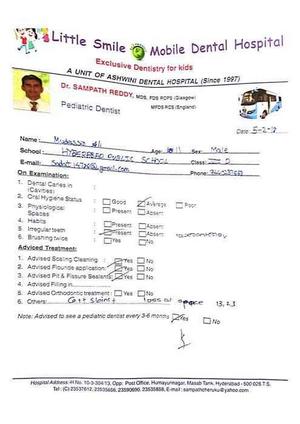 Little Smile Mobile Dental Hospital
Exclusive Dentistry for kids
A UNIT OF ASHWINI DENTAL HOSPITAL (Since 1997)
Dr. SAMPATH REDDY, MDS, FDS RCPS (Glasgow)
MFDS RCS (England)
Pediatric Dentist
Date: 5-2-
Name: Ali
Age: 11 Sex: Male
School: PUBLIC SCHOOL Class:
E-mail: @gmail.com Phone:
On Examination:
1. Dental Caries in (Cavities):
2. Oral Hygiene Status : Good Average Poor
3. Physiological Spaces : Present Absent
4. Habits : Present Absent
5. Irregular teeth : Present Absent
6. Brushing twice : Yes No
Adviced Treatment:
1. Advised Scaling Cleaning : Yes No
2. Advised Flouride application : Yes No
3. Advised Pit & Fissure Sealants : Yes No
4. Advised Filling in
5. Advised Orthodontic treatment : Yes No
6. Others: space 13, 23
Note: Advised to see a pediatric dentist every 3-6 months Yes No
Hospital Address: H No. 10-3-304/13, Opp: Post Office, Humayunagar, Masab Tank, Hyderabad - 500 028 T.S.
Tel: (C) 23537612, 23535656, 23590690, 23535858. Email: sampathcheruku@yahoo.com